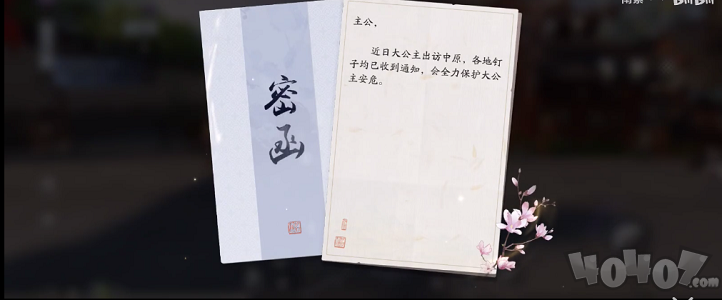 密函
主公，
近日大公主出访中原，各地钉
子均已收到通知，会全力保护大公
主安危。
bilibili
40407.com